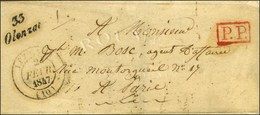 33
Olonzac
FEVR
1847
(10)
P.P.
A Monsieur
Jh. M. Bosc, agent d'affaire
Rue montorgueil N° 17
à Paris